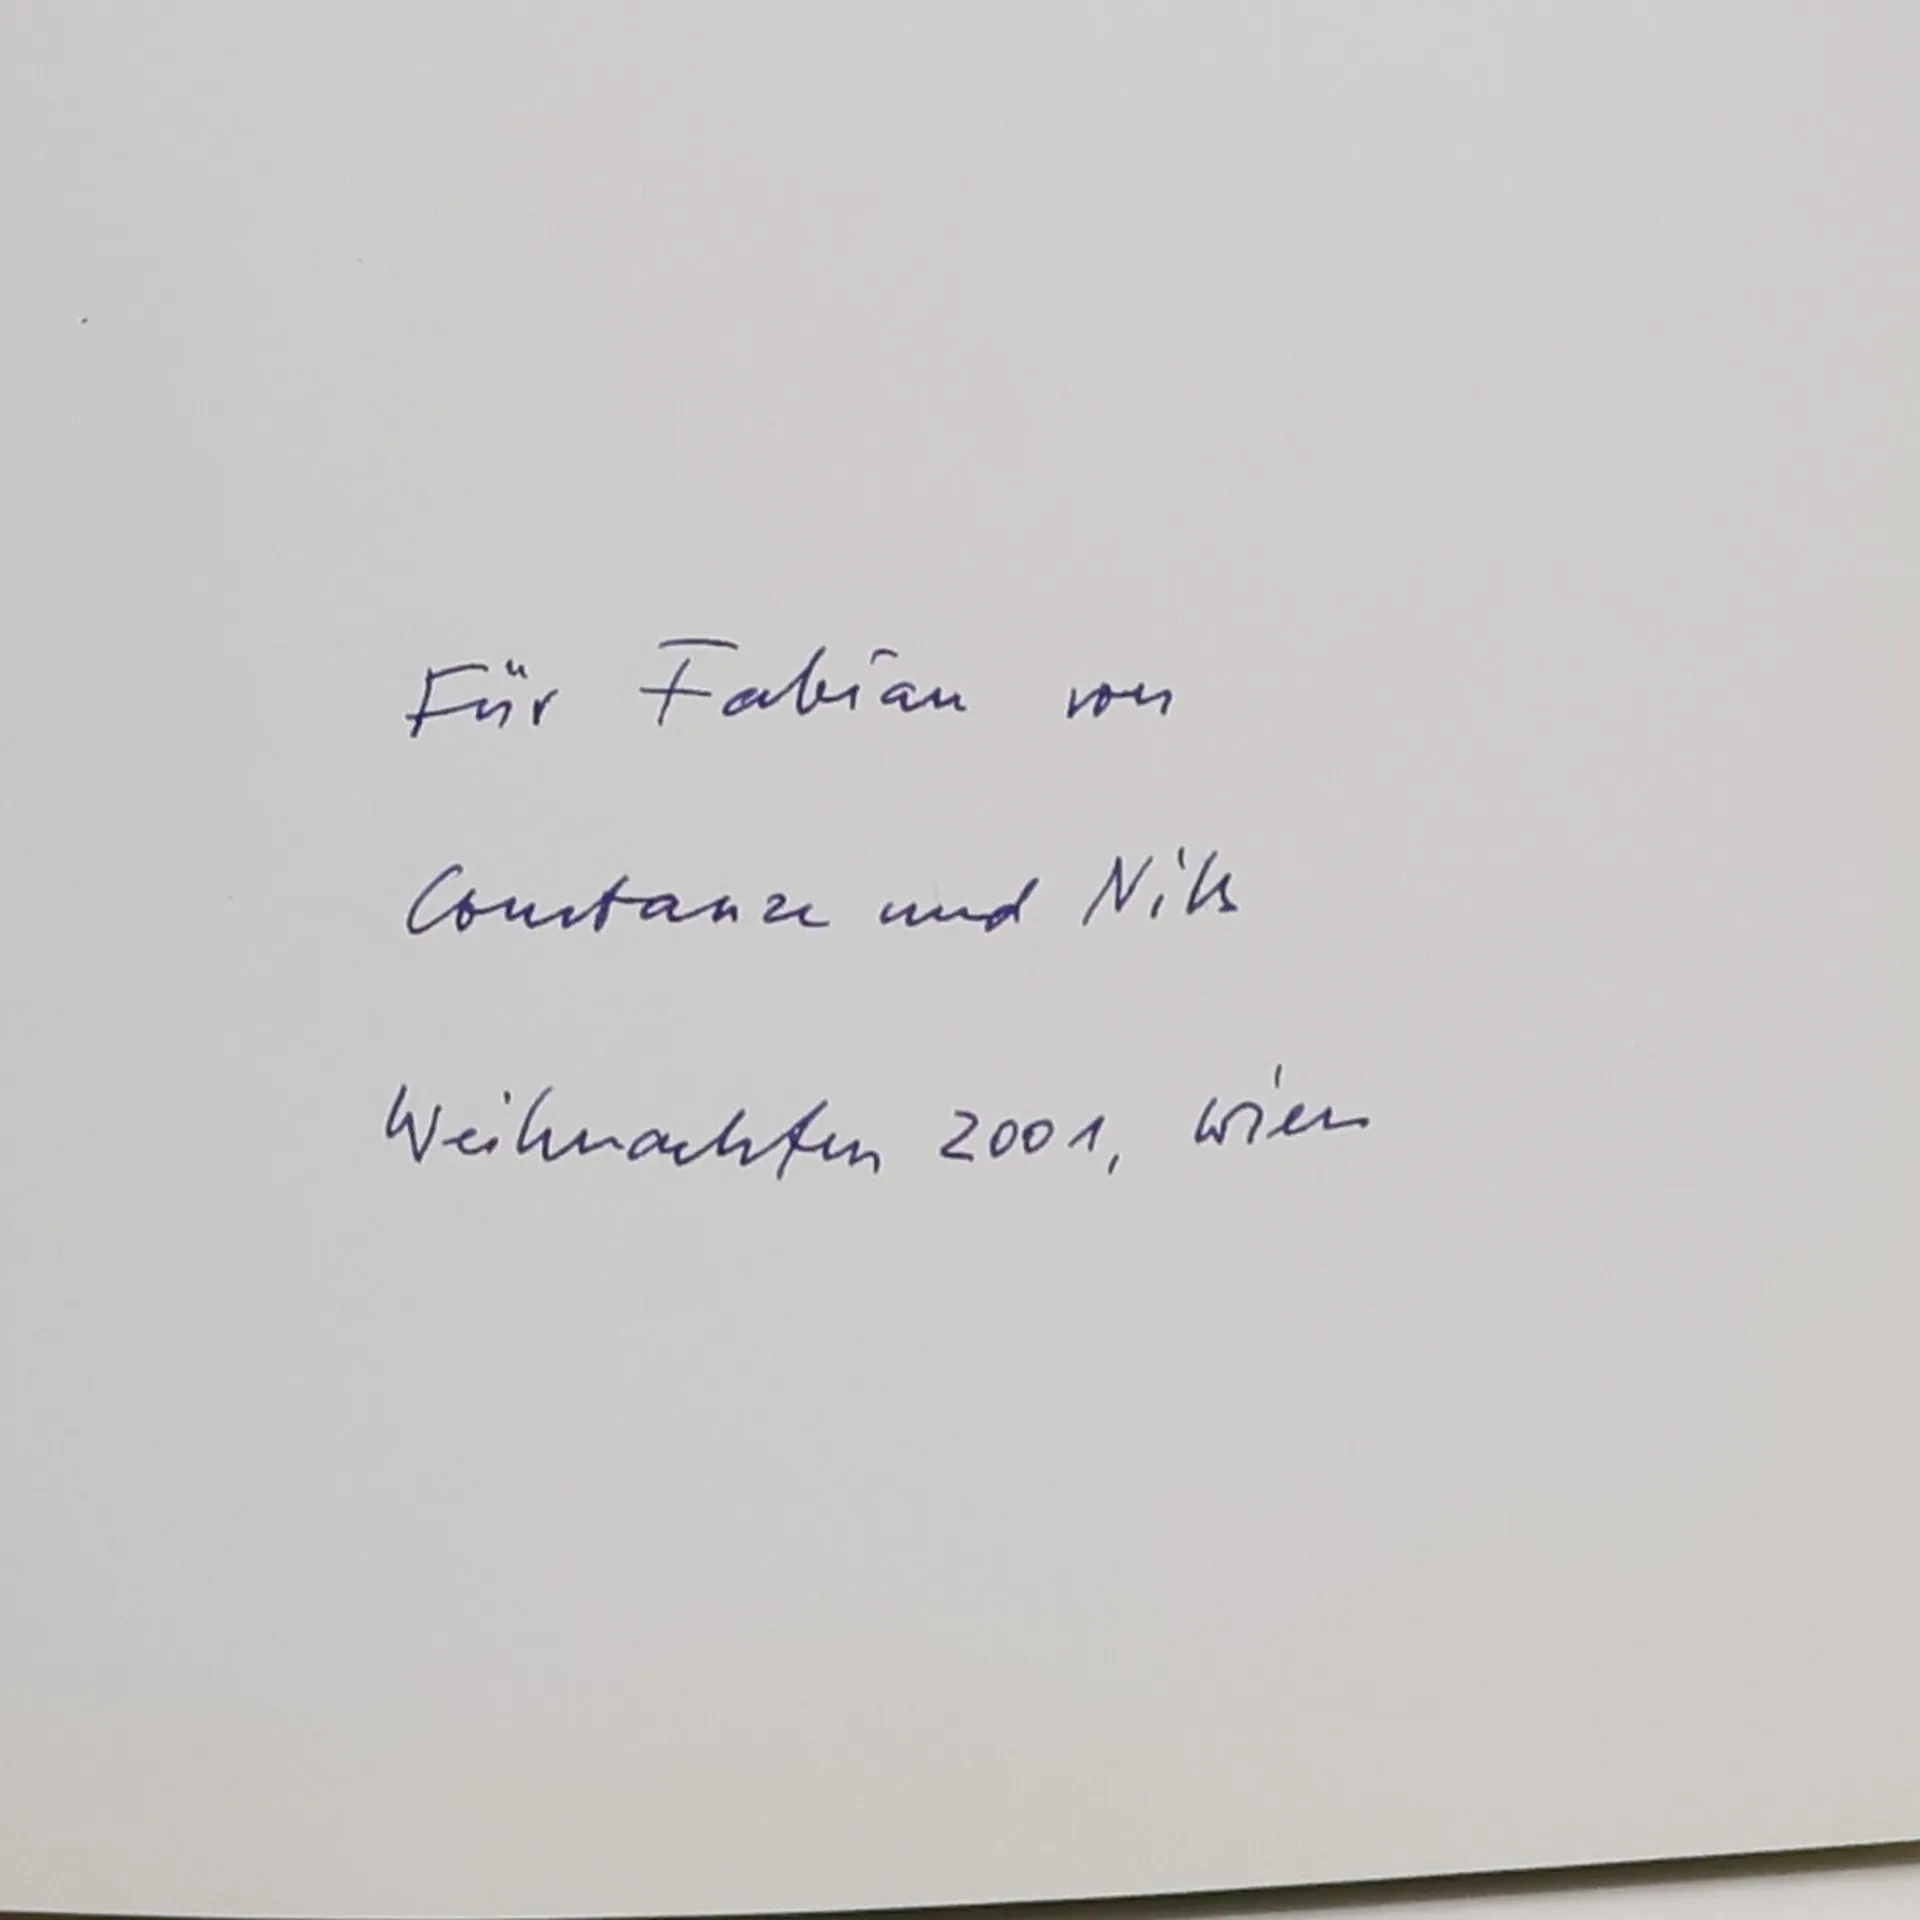 Für Fabian von
Constanze und Nils
Weihnachten 2001, Wien